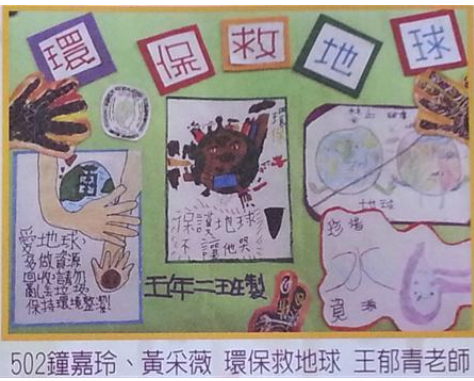 環保救地球
愛地球、
多做資源
回收,請勿
亂丟垃圾
保持環境整潔!
環保
保護地球
不讓他哭
五年二班製
地球
珍惜
水
資源
502鐘嘉玲、黃采薇 環保救地球 王郁青老師